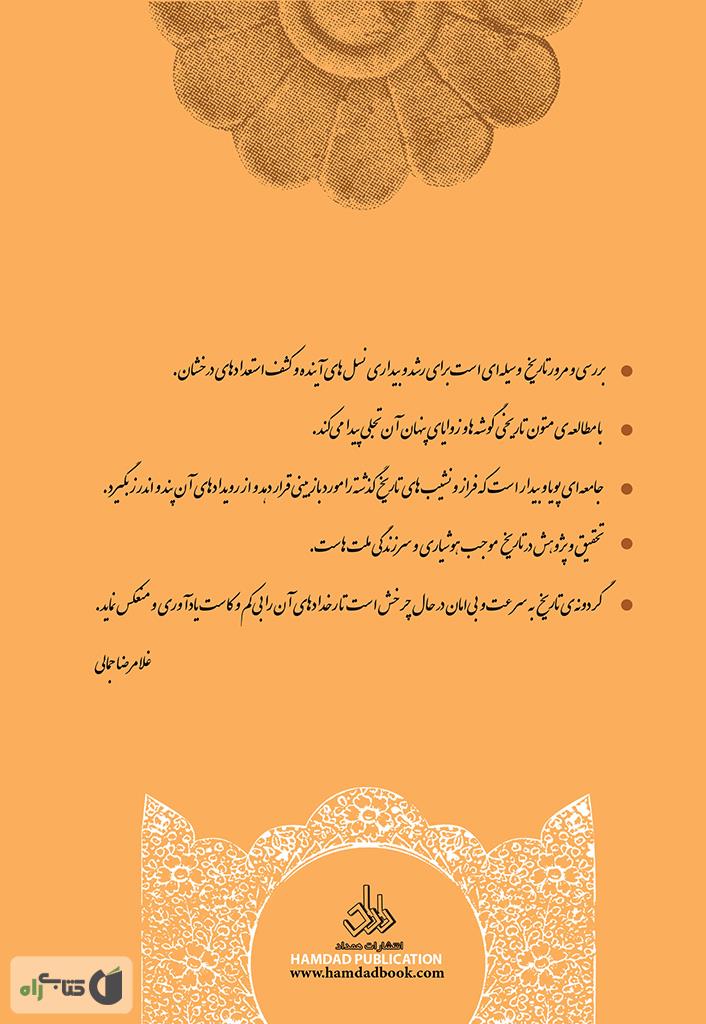 بررسی و مرور تاریخ وسیله‌ای است برای رشد و بیداری نسل‌های آینده و کشف استعدادهای درخشان.
با مطالعه‌ی متون تاریخی گوشه‌ها و زوایای پنهان آن تجلی پیدا می‌کند.
جامعه‌ای پویا و بیدار است که فراز و نشیب‌های تاریخ گذشته را مورد بازبینی قرار دهد و از رویدادهای آن پند و اندرز بگیرد.
تحقیق و پژوهش در تاریخ موجب هوشیاری و سرزندگی ملت‌هاست.
گردونه‌ی تاریخ به سرعت و بی‌امان در حال چرخش است تا رخدادهای آن را بی‌کم و کاست یادآوری و منعکس نماید.
غلامرضا جمالی
انتشارات همداد
HAMDAD PUBLICATION
www.hamdadbook.com
کتابراه